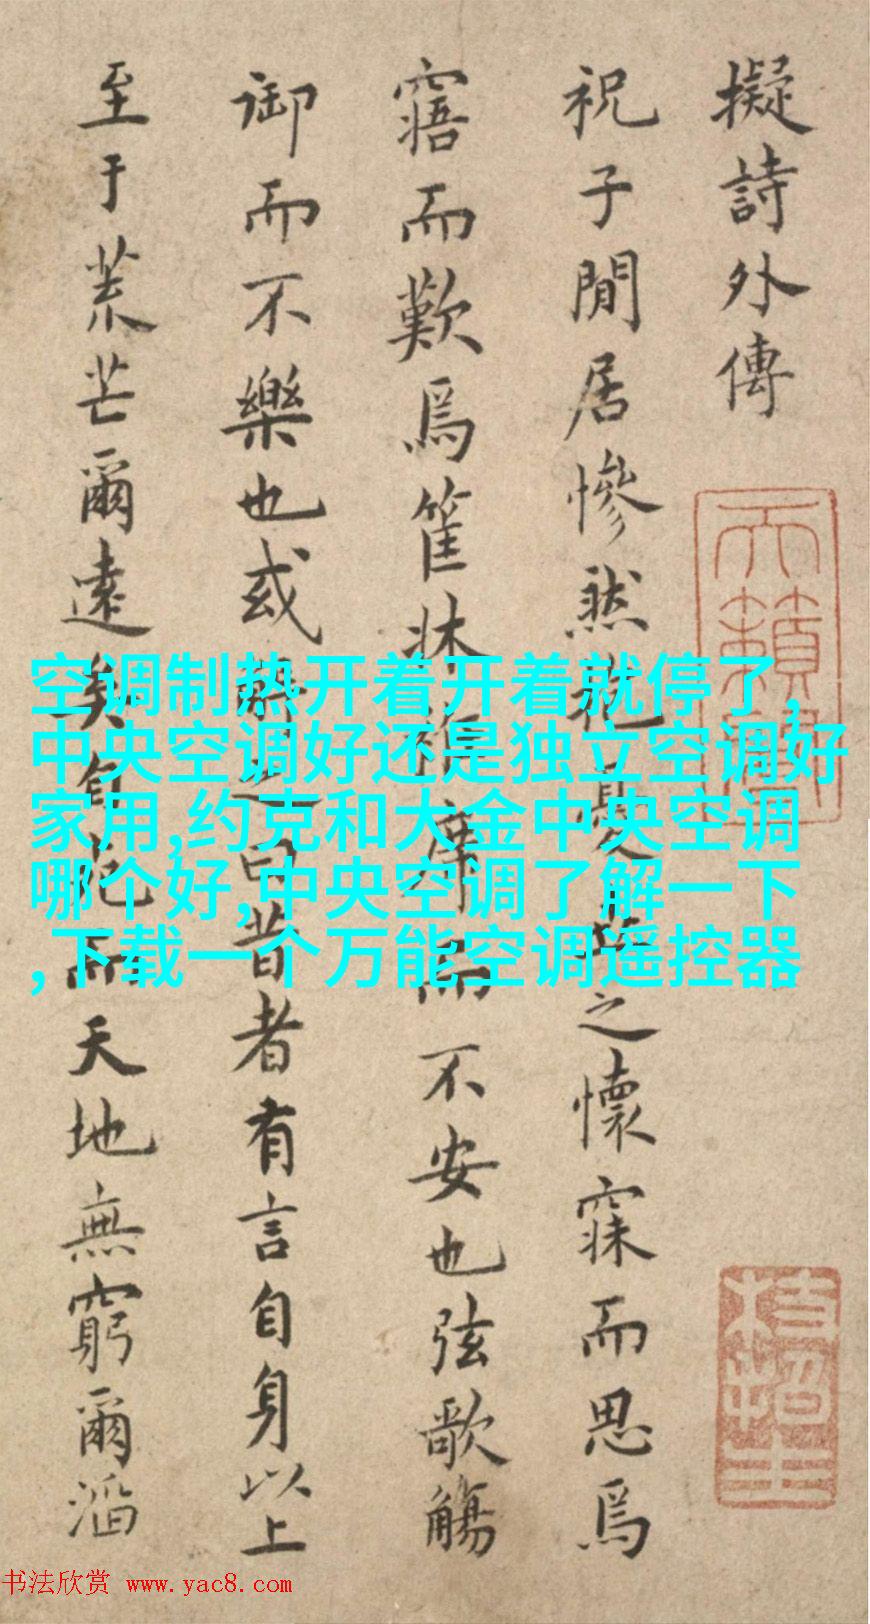 擬詩外傳
祝子閒居慘然抱憂之懷寐而思焉
寤而歎焉筐牀席而不安也弦歌觴
御而不樂也或解之曰昔者有言自身以上
至于荒芒爾遠矣自而天地無窮爾滔
天籟閣
枝指生
空调制热开着开着就停了,
中央空调好还是独立空调好
家用,约克和大金中央空调
哪个好,中央空调了解一下
,下载一个万能空调遥控器
书法欣赏 www.yac8.com